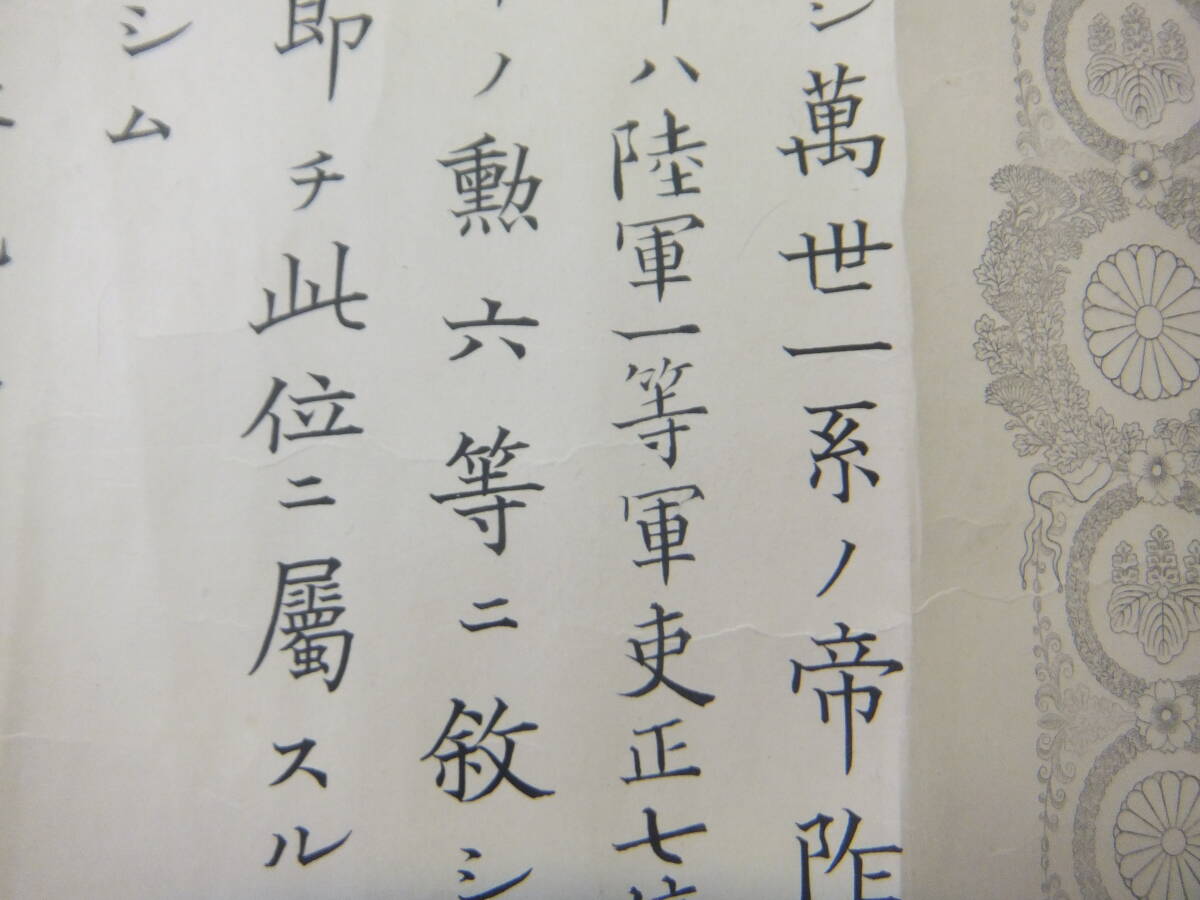 シ萬世一系ノ帝阼
ハ陸軍一等軍吏正七
ノ勲六等ニ敘シ
即チ此位ニ屬スル
シム